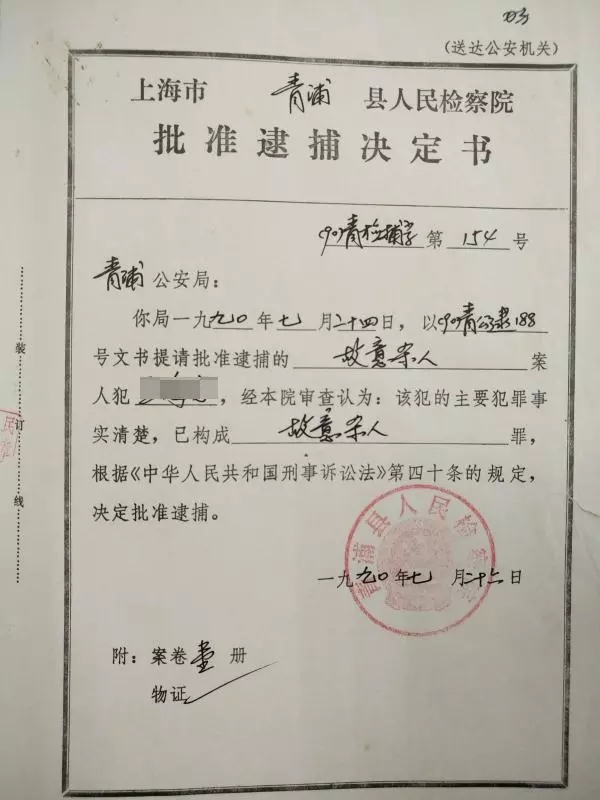 (送达公安机关)
上海市 青浦 县人民检察院
批准逮捕决定书
(90)青检捕字 第 154 号
青浦 公安局:
你局一九九〇年七月二十四日，以(90)青公隶188
号文书提请批准逮捕的 故意杀人 案
人犯 ，经本院审查认为：该犯的主要犯罪事
实清楚，已构成 故意杀人 罪，
根据《中华人民共和国刑事诉讼法》第四十条的规定，
决定批准逮捕。
青浦县人民检察院
一九九〇年七月二十六日
附：案卷壹册
物证
装
订
线